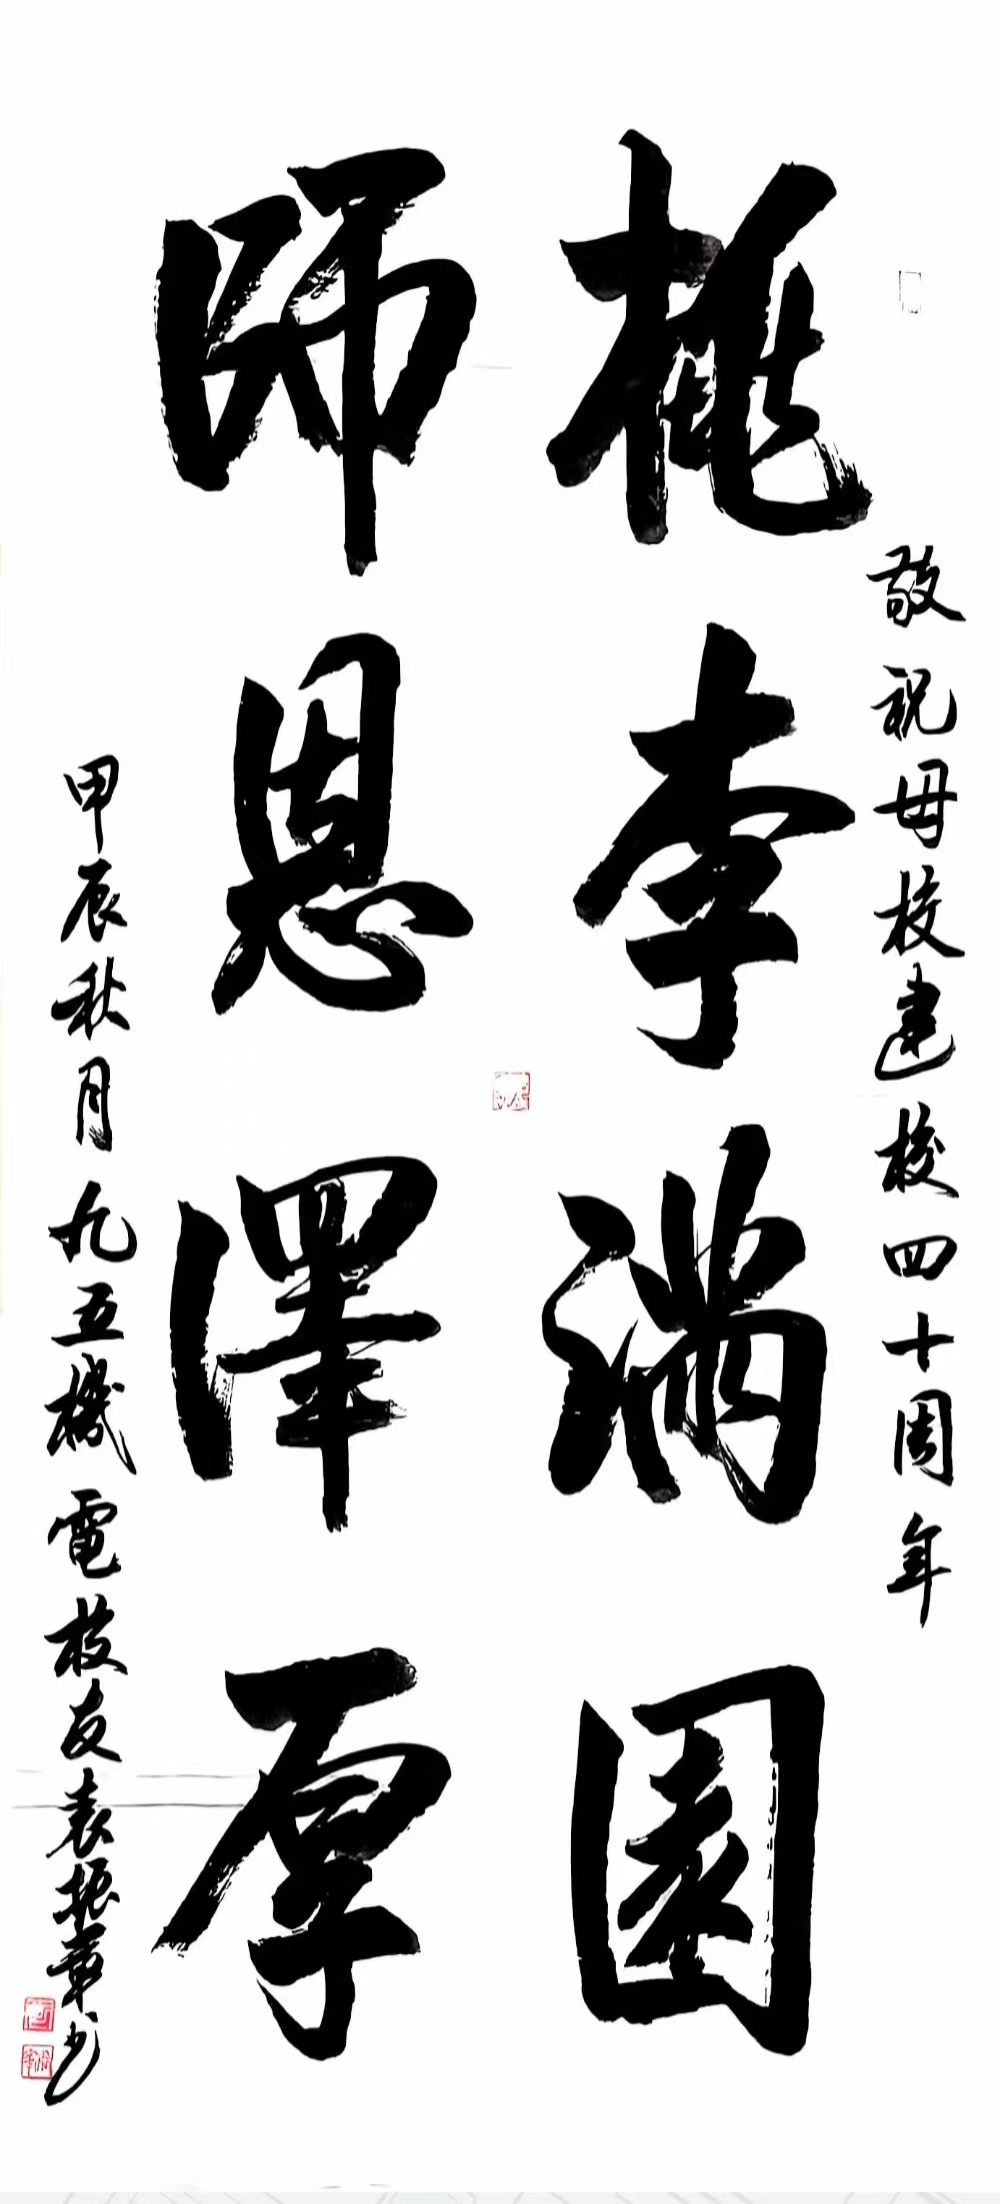 敬祝母校建校四十周年
桃李滿園
師恩澤厚
甲辰秋月九五機電校友袁振華书